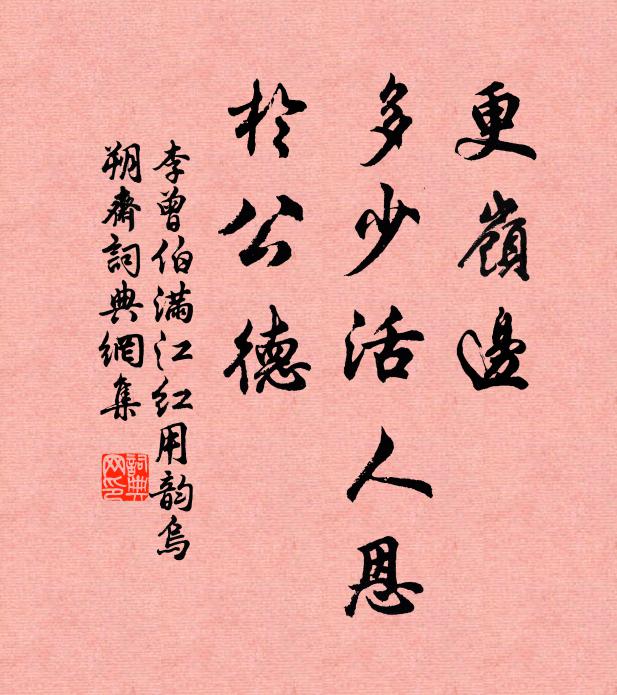 更嶺邊
多少活人恩
於公德
李曾伯滿江紅用韵烏
朔齋詞典網集
詞典
网印